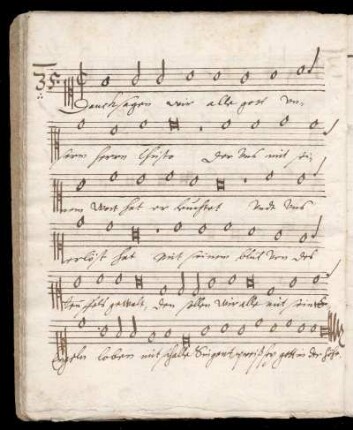 35.
Dancksagen wir alle gott un,
serm herrn Christo der uns mit sei,
nem Wort hat er leuchtet Undt uns
erlöst hat mit seinem blut von des
teuffels gewalt, den sollen wir alle mit seinen
Engeln loben mit schalle Singent preiß sey gott in der höhe.